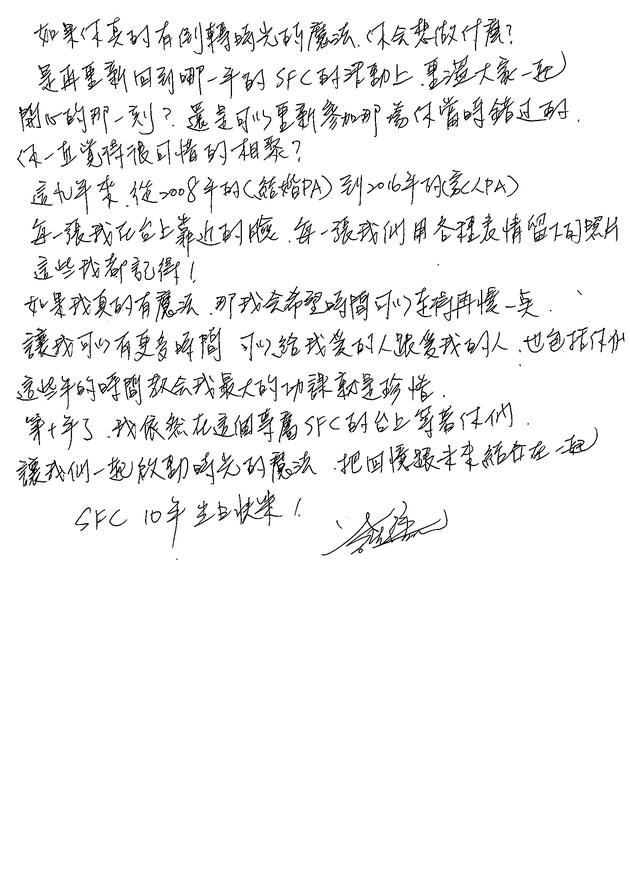 如果你真的有倒轉時光的魔法,你会想做什麼?
是再重新回到哪一年的SFC的活動上,重溫大家一起
開心的那一刻?還是可以重新參加那為你當時錯過的.
你一直覺得很可惜的相聚?
這九年來,從2008年的(結婚PA)到2016年的(家人PA)
每一張我在台上靠近的臉,每一張我们用各種表情留下的照片
這些我都記得!
如果我真的有魔法,那我会希望時間可以走得再慢一点.
讓我可以有更多時間 可以給我愛的人跟愛我的人,也包括你们
這些年的時間教会我最大的功課就是珍惜.
第十年了,我依然在這個專屬SFC的台上等著你們.
讓我们一起啟動時光的魔法,把回憶跟未來結合在一起
SFC 10年 生日快樂!